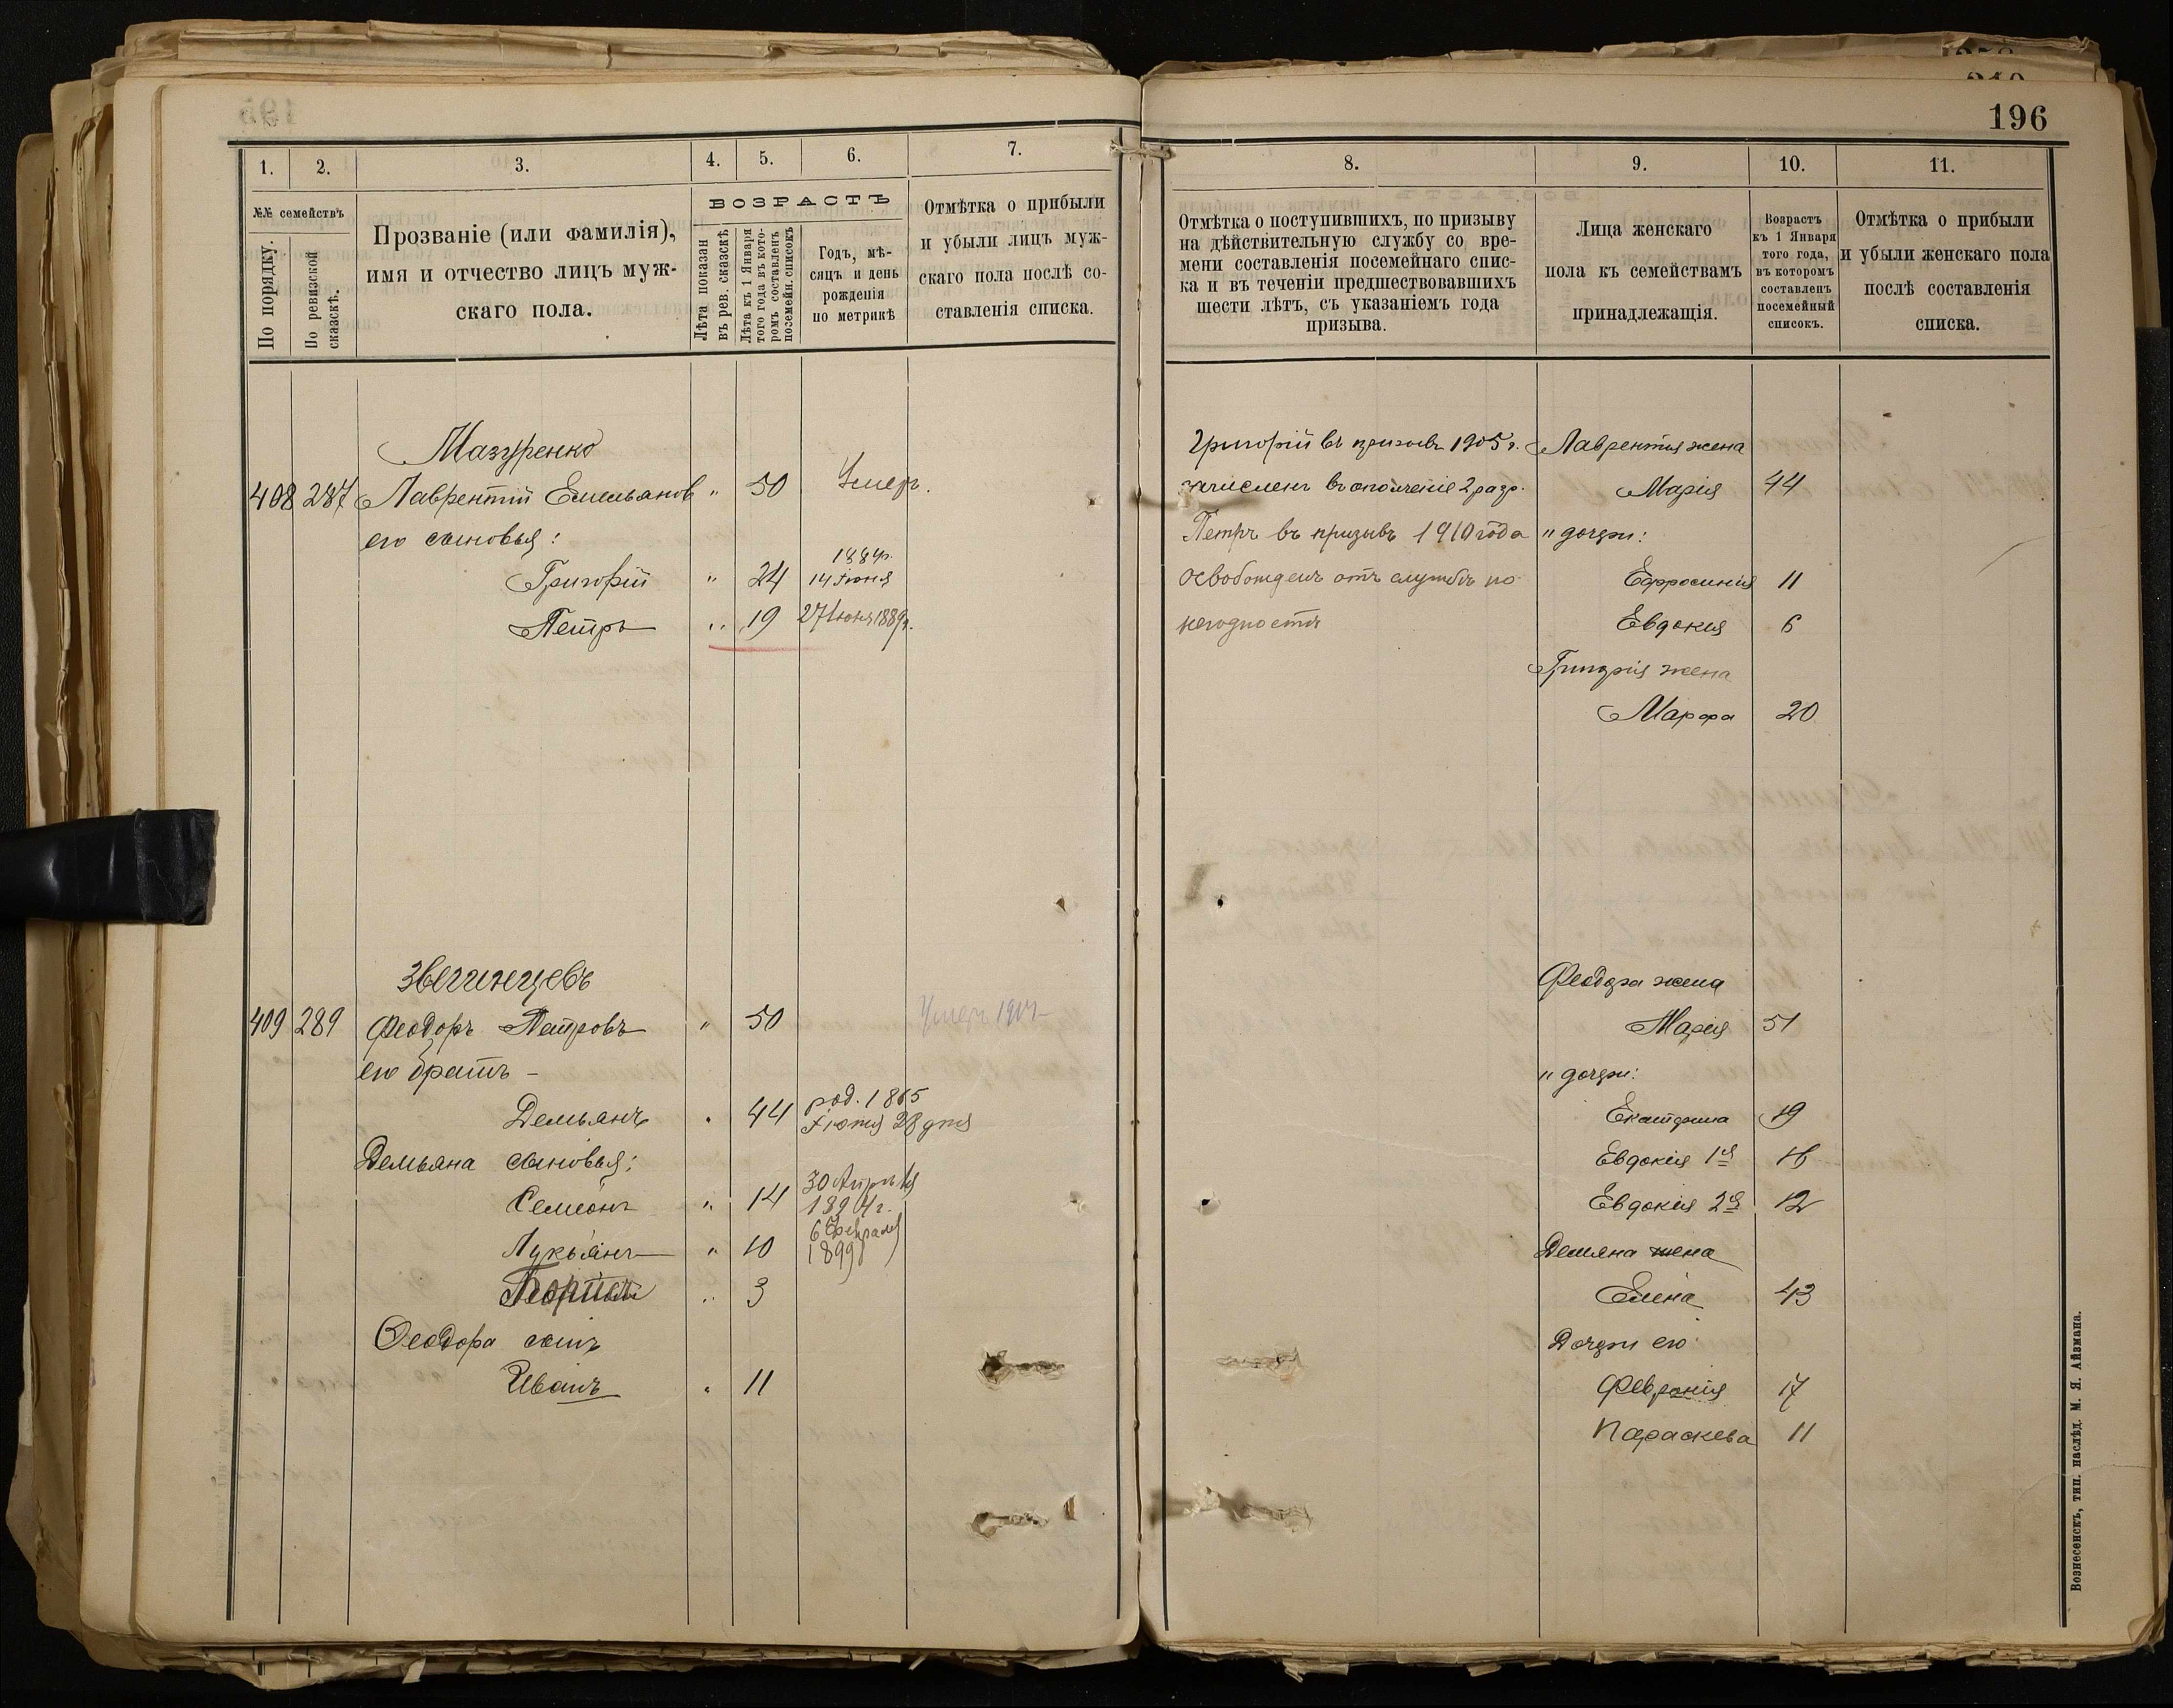 196
1. 2. 3. 4. 5. 6. 7.
№№ семействъ
По порядку.
По ревизской сказскѣ.
Прозваніе (или фамилія),
имя и отчество лицъ муж-
скаго пола.
ВОЗРАСТЪ
Лѣта показан
въ рев. сказскѣ
Лѣта къ 1 Января
того года въ кото-
ромъ составленъ
посемейн. списокъ
Годъ, мѣ-
сяцъ и день
рожденія
по метрикѣ
Отмѣтка о прибыли
и убыли лицъ муж-
скаго пола послѣ со-
ставленія списка.
Мазуренко
408 287 Лаврентій Емельянов " 50 Умер.
его сыновья:
Григорій " 24 1884г. 14 Іюня
Петръ " 19 27 Іюня 1889г.
Звегинцевъ
409 289 Феодоръ Петровъ " 50 Умеръ
его братъ -
Демьянъ " 44 род. 1865
28 дня
Демьяна сыновья:
Семіонъ " 14 30 Апрѣля
1894г.
Лукьянъ " 10 6 Февраля
1899
" 3
Феодора сынъ
Иванъ " 11
8. 9. 10. 11.
Отмѣтка о поступившихъ, по призыву
на дѣйствительную службу со вре-
мени составленія посемейнаго спис-
ка и въ теченіи предшествовавшихъ
шести лѣтъ, съ указаніемъ года
призыва.
Лица женскаго
пола къ семействамъ
принадлежащія.
Возрастъ
къ 1 Января
того года,
въ которомъ
составленъ
посемейный
списокъ.
Отмѣтка о прибыли
и убыли женскаго пола
послѣ составленія
списка.
Григорій въ призывъ 1905 г. Лаврентія жена
зачисленъ въ ополченіе 2 разр. Марія 44
Петръ въ призывъ 1910 года " дочери:
освобожденъ отъ службы по Ефросинія 11
негодности Евдокия 6
Григорія жена
Марфа 20
Феодора жена
Марія 51
" дочери:
Екатерина 19
Евдокія 1я 16
Евдокія 2я 12
Демяна жена
Елена 43
Дочери его
Февронія 17
Параскева 11
Вознесенскъ, тип. наслѣд. М. Я. Айзмана.